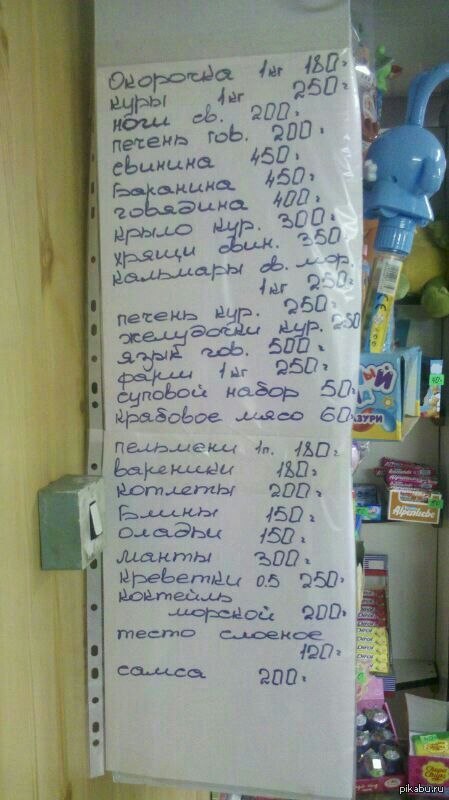 Окорочка 1кг 180=
куры 1кг 250=
ноги св. 200=
печень гов. 200=
свинина 450=
Баранина 450=
говядина 400=
крыло кур. 300=
хрящи свин. 350
кальмары св. мор.
1кг 250=
печень кур. 250=
желудочки кур. 250
язык гов. 500=
фарш 1кг 250=
суповой набор 50=
крабовое мясо 60=
пельмени 1п. 180=
вареники 180=
котлеты 200=
Блины 150=
оладьи 150=
манты 300=
креветки 0.5 250=
коктейль
морской 200=
тесто слоеное
120=
самса 200=
АЗУРИ
Alpenliebe
Dirol
Chupa Chups
pikabu.ru